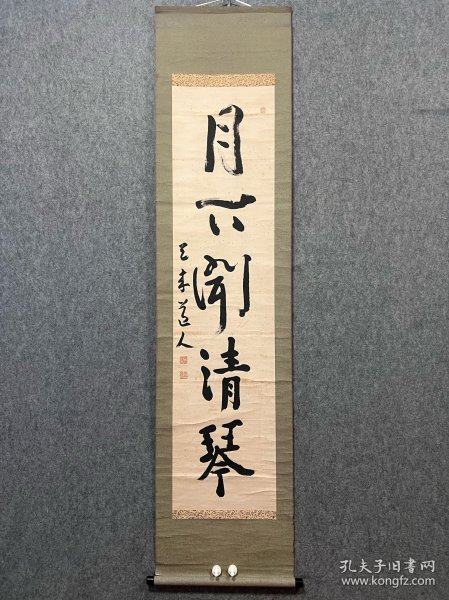 月下聞清琴
道人
孔夫子旧书网
www.kongfz.com